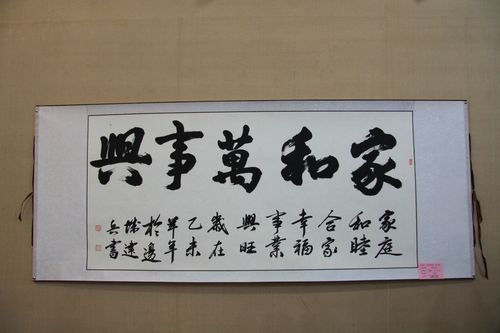 家和萬事興
家庭
和睦
合家
幸福
事業
興旺
歲在
乙未
羊年
於邊
城建
兵書